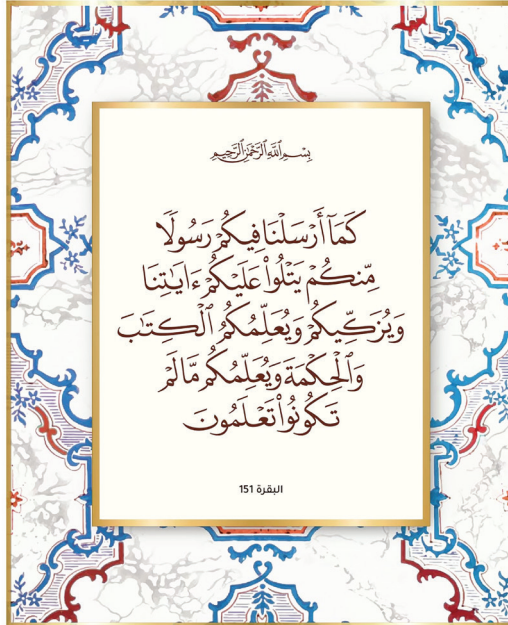 بِسْمِ ٱللَّهِ ٱلرَّحْمَٰنِ ٱلرَّحِيمِ
كَمَآ أَرْسَلْنَا فِيكُمْ رَسُولًا
مِّنكُمْ يَتْلُوا۟ عَلَيْكُمْ ءَايَٰتِنَا
وَيُزَكِّيكُمْ وَيُعَلِّمُكُمُ ٱلْكِتَٰبَ
وَٱلْحِكْمَةَ وَيُعَلِّمُكُم مَّا لَمْ
تَكُونُوا۟ تَعْلَمُونَ
البقرة 151